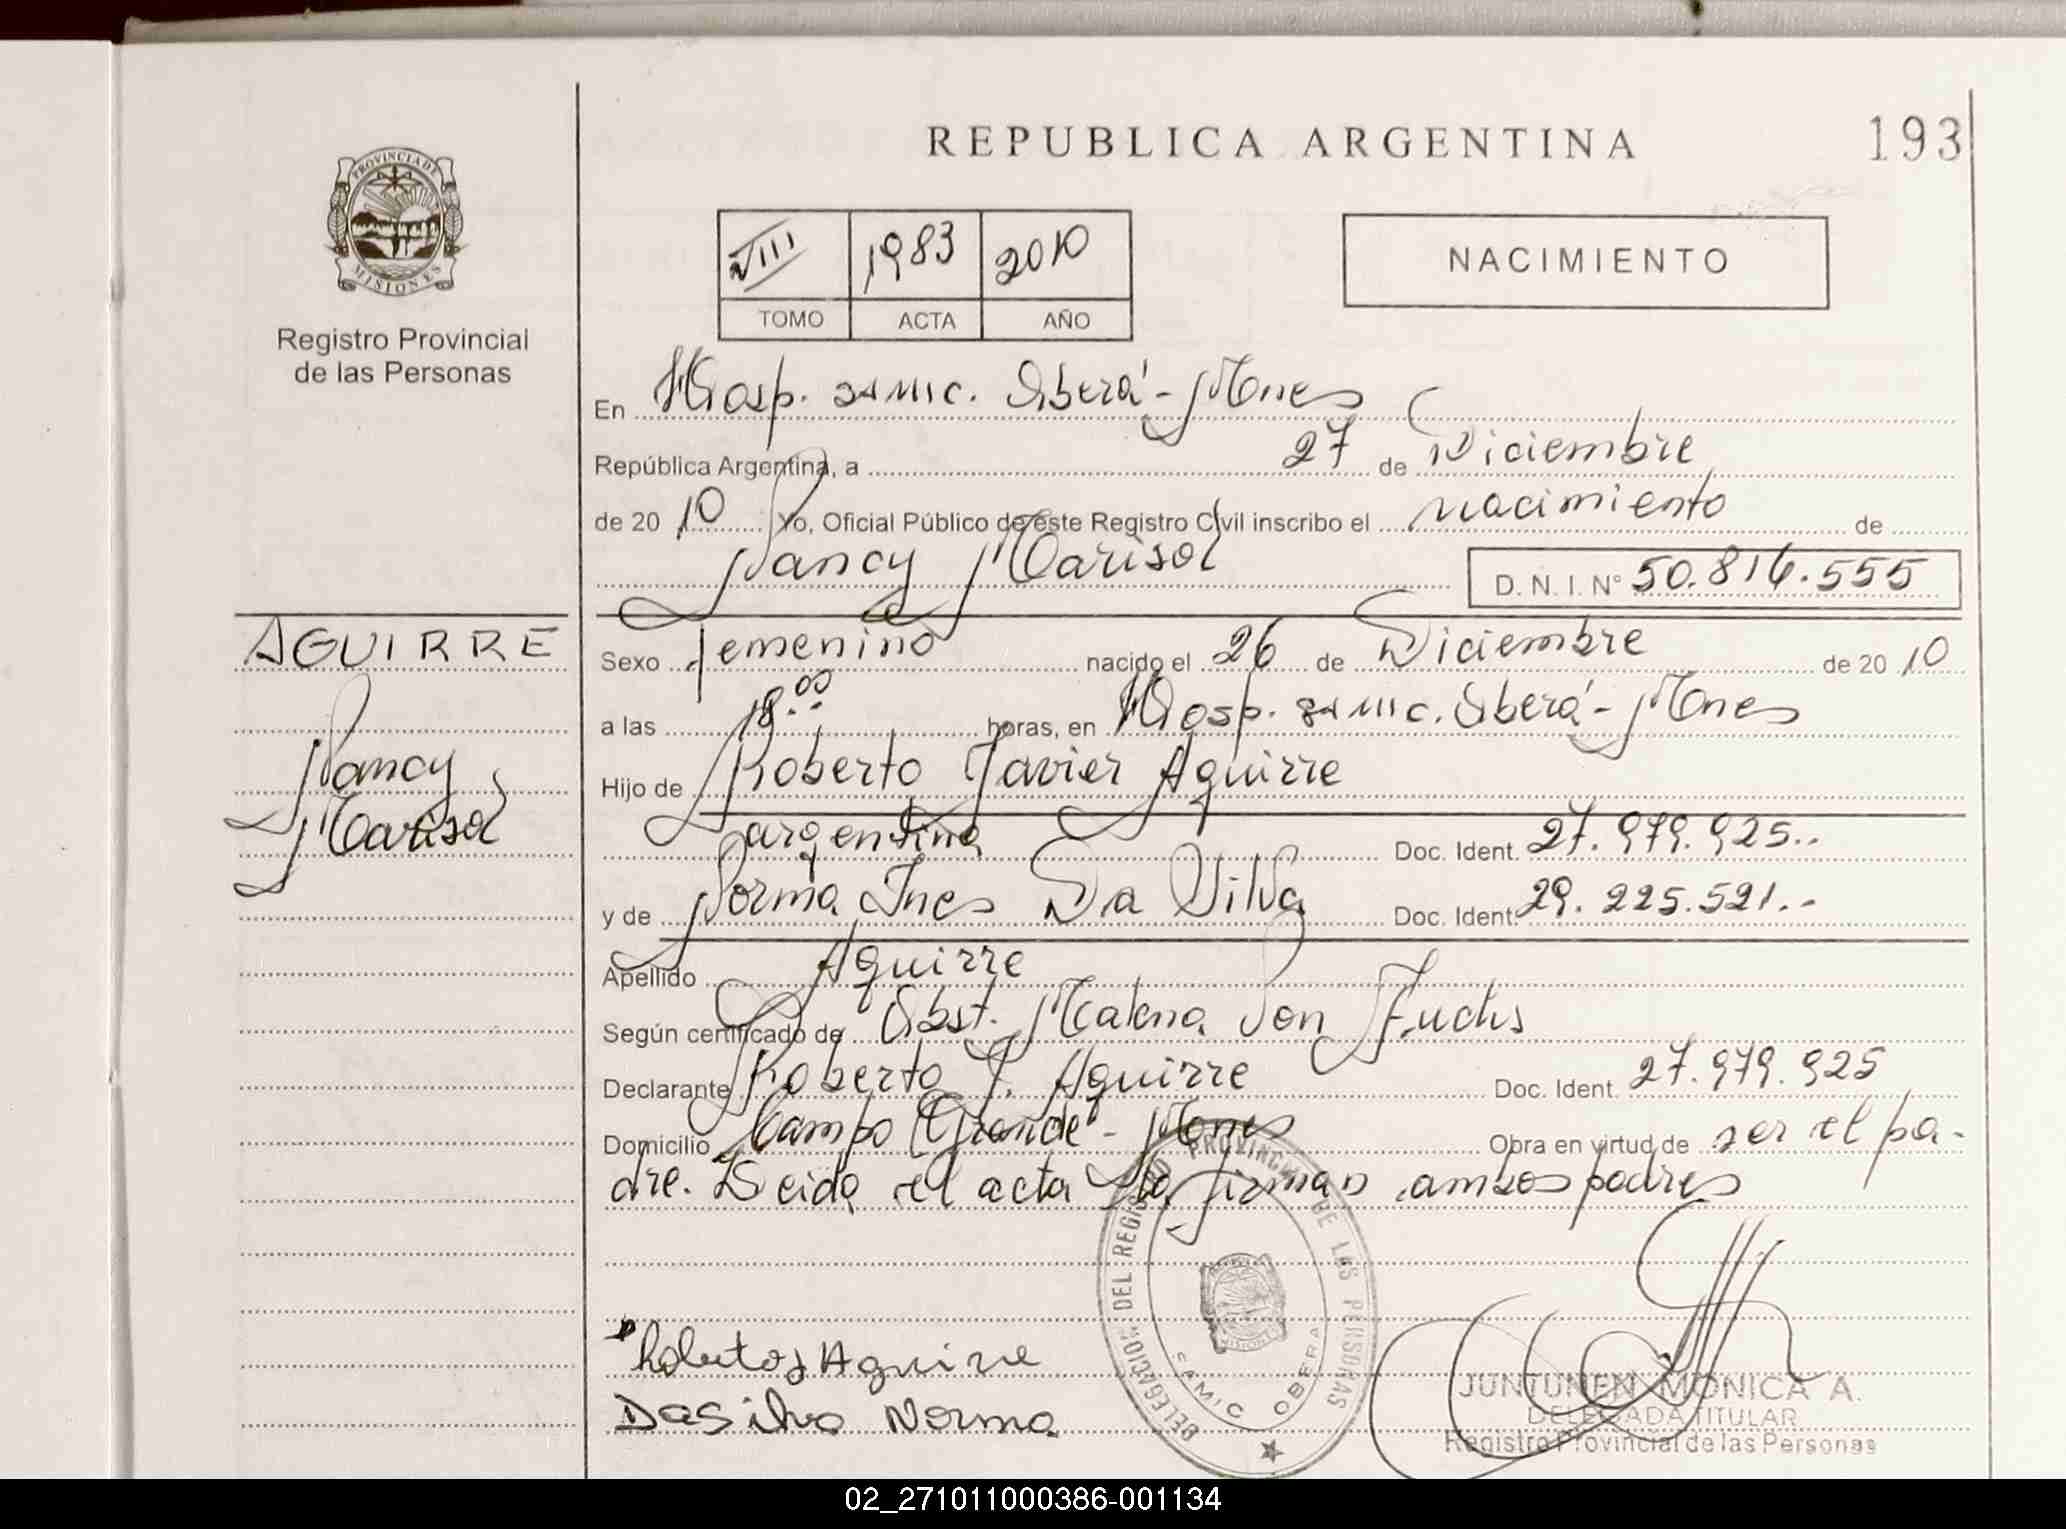 REPUBLICA ARGENTINA
193
PROVINCIA DE
MISIONES
Registro Provincial
de las Personas
VIII 1983 2010
TOMO ACTA AÑO
NACIMIENTO
En Hosp. SAMIC. Oberá - Mnes
República Argentina, a 27 de Diciembre
de 20 10 Yo, Oficial Público de este Registro Civil inscribo el nacimiento de
Nancy Marisol
D. N. I. Nº 50.816.555
AGUIRRE
Nancy
Marisol
Sexo femenino nacido el 26 de Diciembre de 20 10
a las 18:00 horas, en Hosp. SAMIC. Oberá - Mnes
Hijo de Roberto Javier Aguirre
argentino Doc. Ident. 27.979.925..
y de Norma Ines Da Silva Doc. Ident. 29.225.521..
Apellido Aguirre
Según certificado de Obst. Malena Von Fuchs
Declarante Roberto J. Aguirre Doc. Ident. 27.979.925
Domicilio Campo Grande - Mnes Obra en virtud de ser el pa-
dre. Leida el acta la firman ambos padres
Roberto J Aguirre
Da Silva Norma
DELEGACION DEL REGISTRO PROVINCIAL DE LAS PERSONAS
SAMIC OBERA
JUNTUNEN MONICA A.
DELEGADA TITULAR
Registro Provincial de las Personas
02_271011000386-001134